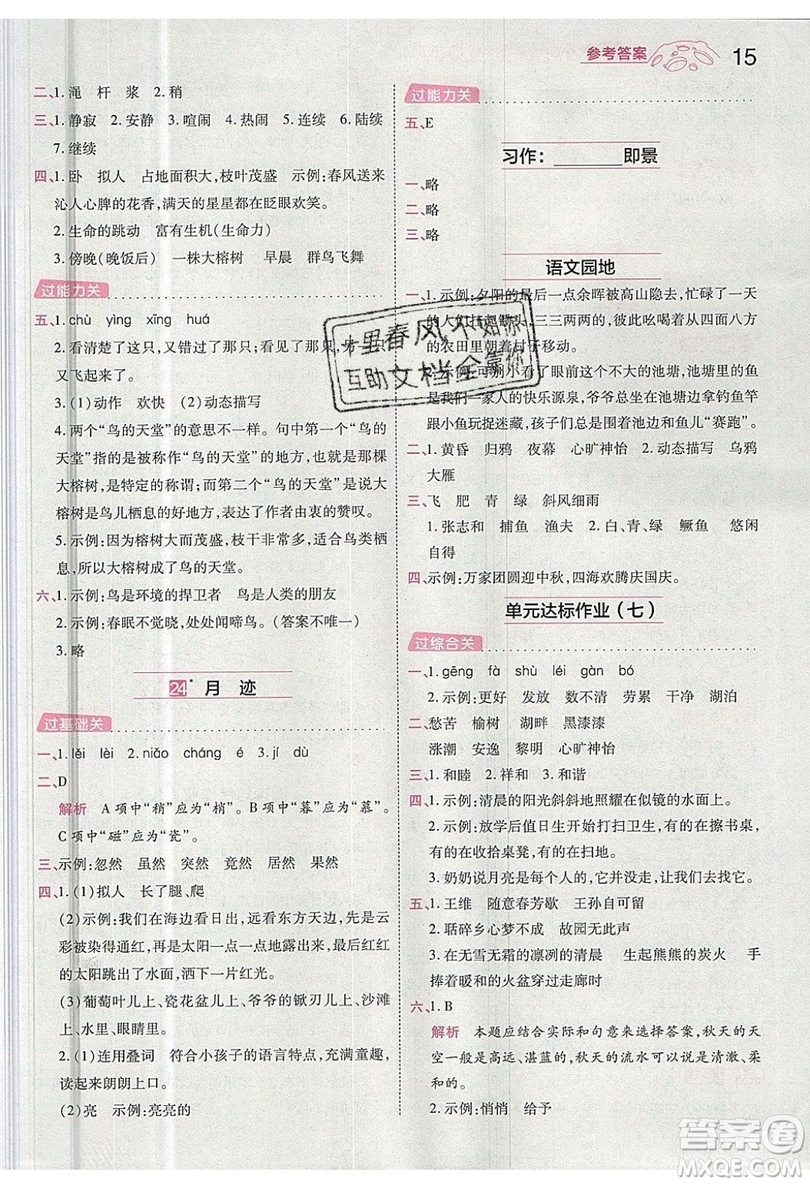 参考答案
15
二、1.渑 杆 浆 2.稍
三、1.静寂 2.安静 3.喧闹 4.热闹 5.连续 6.陆续
7.继续
四、1.卧 拟人 占地面积大,枝叶茂盛 示例:春风送来
沁人心脾的花香,满天的星星都在眨眼欢笑。
2.生命的跳动 富有生机(生命力)
3.傍晚(晚饭后) 一株大榕树 早晨 群鸟飞舞
过能力关
五、1.chù yìng xīng huá
2.看清楚了这只,又错过了那只;看见了那只,另一只又飞起来了。
3.(1)动作 欢快 (2)动态描写
4.两个“鸟的天堂”的意思不一样。句中第一个“鸟的
天堂”指的是巴金笔下“鸟的天堂”的地方,也就是那棵
大榕树,是特定的称谓;而第二个“鸟的天堂”是说大
榕树是鸟儿栖息的好地方,表达了作者由衷的赞叹。
5.示例:因为大榕树大而茂盛,枝干非常多,鸟儿栖息
所以,大榕树是鸟的天堂。
六、1.示例:鸟是环境的捍卫者 鸟是人类的朋友
2.示例:春眠不觉晓,处处闻啼鸟。(答案不唯一)
3.略
24* 月迹
过基础关
一、1.lěi lèi 2.niǎo cháng é 3.jí dù
二、D
解析 A项中“稍”应为“梢”。B项中“暮”应为“幕”。
C项中“磁”应为“瓷”。
三、示例:忽然 虽然 突然 竟然 居然 果然
四、1.(1)拟人 长了腿,爬
(2)示例:我们在海边看日出,远看东方天边,是云
彩被染得通红,再是太阳一点一点地露出来,红红
的太阳跳出了水面,洒下一片红光。
(3)葡萄叶儿上、瓷花盆儿上、爷爷的锨刃儿上、沙滩
上、水里、眼睛里。
2.(1)连用叠词 符合小孩子的语言特点,充满童趣,
读起来朗朗上口。
(2)亮 示例:亮亮的
过能力关
五、E
习作:________即景
一、略
二、略
三、略
语文园地
一、1.示例:夕阳的最后一点余晖被高山隐去,忙碌了一天
2.示例:可别小看了眼前这个不大的池塘,池塘里的鱼
虾是我们一家人的快乐源泉,爷爷总是坐在池边,
跟小鱼玩捉迷藏,我则常常围着池边和鱼儿“赛跑”。
二、1.黄昏 归鸦 夜幕 心旷神怡 2.动态描写 乌鸦
大雁
三、飞 肥 青 绿 斜风细雨
1.张志和 捕鱼 渔夫 2.青、绿 鳜鱼 悠闲
自得
四、示例:万家团圆迎中秋,四海欢腾庆国庆。
单元达标作业(七)
过综合关
一、1.gēng fà shù léi gàn bó
2.示例:更好 发放 数不清 劳累 干净 湖泊
二、愁苦 榆树 湖畔 黑漆漆
涨潮 安逸 黎明 心旷神怡
三、1.和睦 2.祥和 3.和谐
四、1.示例:清晨的阳光斜斜地照耀在似镜的水面上。
2.示例:放学后值日生开始打扫卫生,有的在擦书桌,
有的在收拾桌凳,有的在扫地。
3.奶奶说月亮是个好东西,它可以照亮每个人的心。
五、1.王维 随意春芳歇 王孙自可留
2.聒碎乡心梦不成 故园无此声
3.在无雪无霜的凛冽的清晨 生起熊熊的炭火 手
捧着暖的火盆穿过走廊时
六、1.B
解析 本题应结合实际和句意来选择答案,秋天的天
空一般是高远、湛蓝的,秋天的流水可以说是清澈、柔
和的。
2.示例:悄悄 给予
十里春风不如你
互助文档全靠你
答案圈
MXQE.COM